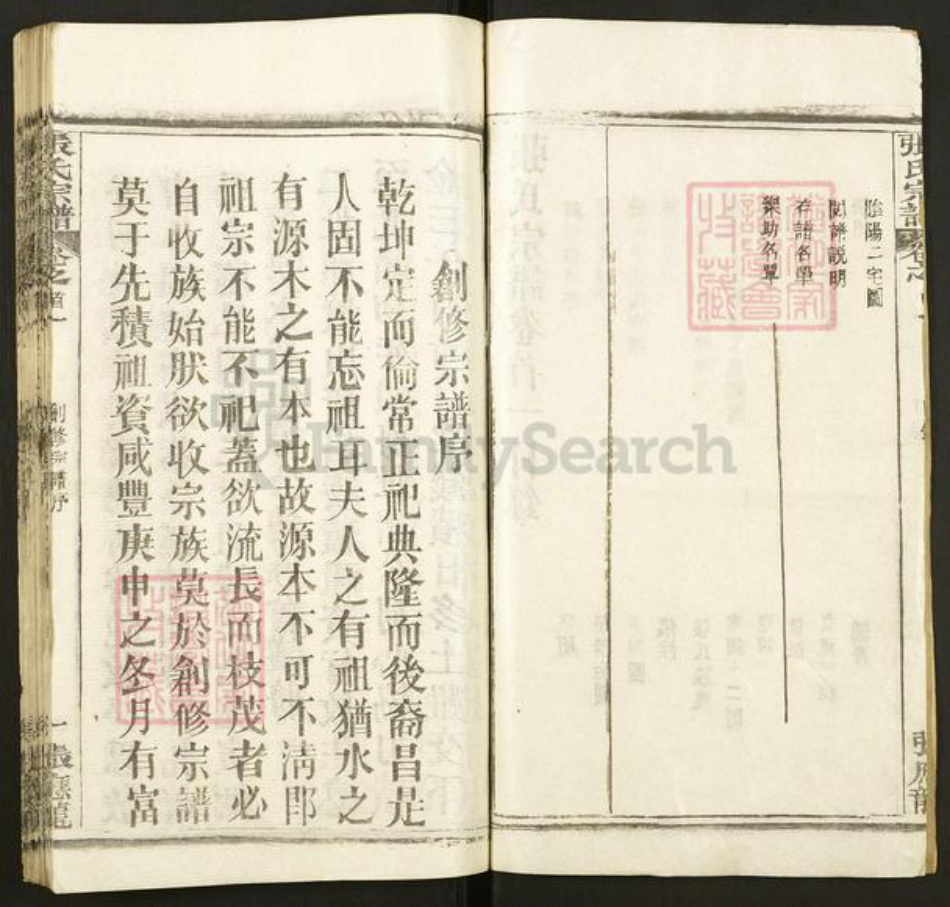 張氏宗譜
陰陽二宅圖
閱譜說明
存譜名單
樂助名單
張應龍
創修宗譜序
乾坤定而倫常正祀典隆而後裔昌是
人固不能忘祖耳夫人之有祖猶水之
有源木之有本也故源本不可不淸卽
祖宗不能不祀蓋欲流長而枝茂者必
自收族始肰欲收宗族莫於創修宗譜
莫于先積祖資咸豐庚申之冬月有富
張氏宗譜
卷之首一
創修宗譜序
一
張應龍
FamilySearch